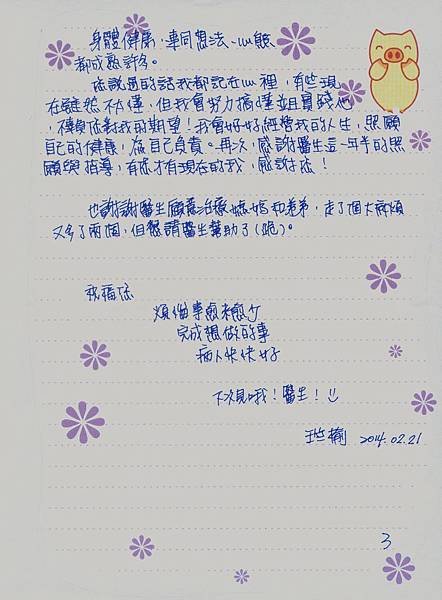 身體健康,連同想法、心態
都成熟許多。
您說過的話我都記在心裡,有些現
在雖然不懂,但我會努力搞懂並且實踐他
,不辜負您對我的期望!我會好好經營我的人生,照顧
自己的健康,為自己負責。再次,感謝醫生這一年半的照
顧與指導,有您才有現在的我,感謝您!
也謝謝醫生願意治療媽媽和弟弟,走了個大麻煩
又多了兩個,但還請醫生幫助了(跪)。
祝福您
煩惱事愈來愈少
完成想做的事
病人快快好
下次見哦!醫生!
2014.02.21
3